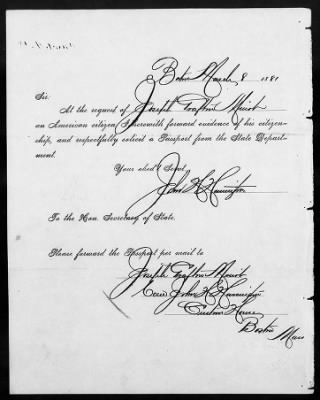 Boston March 8 1881
Sir:
At the request of Joseph Grafton Minot
an American citizen, I herewith forward evidence of his citizen-
ship, and respectfully solicit a Passport from the State Depart-
ment.
Your obed't Serv't,
John H
To the Hon. Secretary of State.
Please forward the Passport per mail to
Joseph Grafton Minot
Care John H
Custom House
Boston
Mass